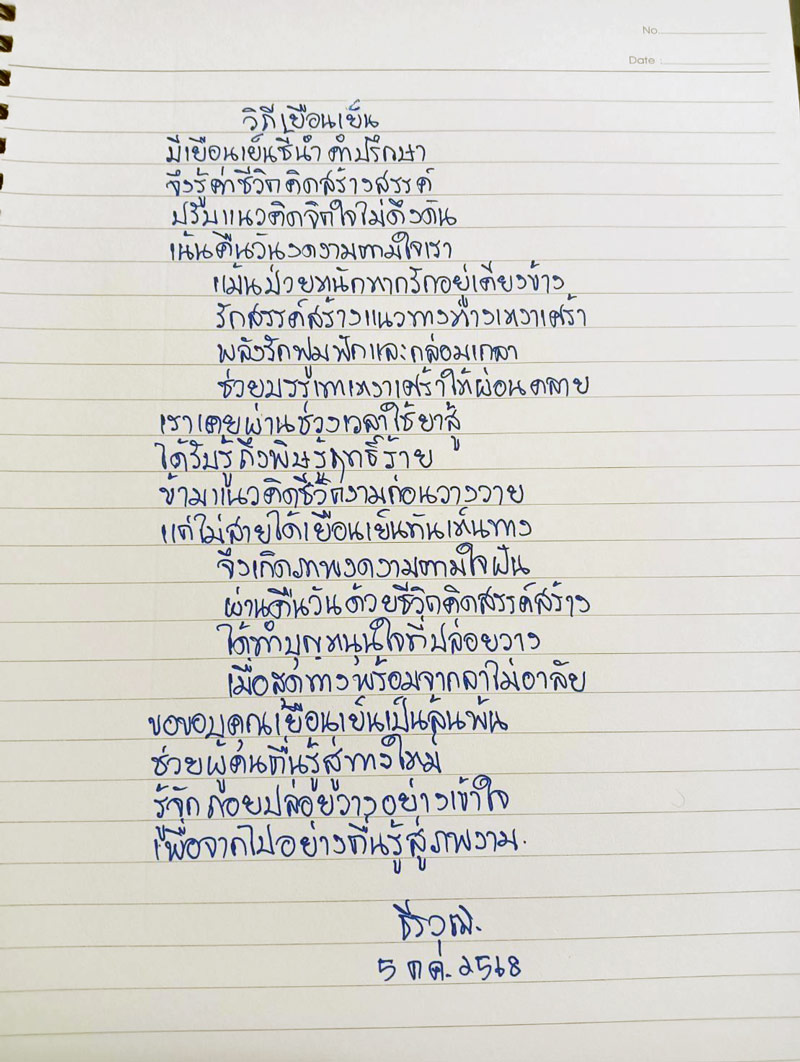 No.
Date
วิถีเยือนเย็น
มีเยือนเย็นชี้นำ คำปรึกษา
จึงรู้ค่าชีวิตคิดสร้างสรรค์
ปรับแนวคิดจิตใจไม่ดึงดัน
เน้นคืนวันงดงามตามใจเรา
แม้นป่วยหนักหากรักอยู่เคียงข้าง
รักสรรค์สร้างแนวทางห่างเหงาเศร้า
พลังรักฟูมฟักและกล่อมเกลา
ช่วยบรรเทาเหงาเศร้าให้ผ่อนคลาย
เราเคยผ่านช่วงเวลาใช้ยาสู้
ได้รับรู้ถึงพิษรู้ฤทธิ์ร้าย
ข้ามาแนวคิดชีวิตงามก่อนวางวาย
แต่ไม่สายได้เยือนเย็นทันเห็นทาง
จึงเกิดภาพงดงามตามใจฝัน
ผ่านคืนวันด้วยชีวิตคิดสรรค์สร้าง
ได้ทำบุญหนุนใจที่ปล่อยวาง
เมื่อสุดทางพร้อมจากลาไม่อาลัย
ขอขอบคุณเยือนเย็นเป็นล้นพ้น
ช่วยผู้คนตื่นรู้สู่ทางใหม่
รู้จักถอยปล่อยวางอย่างเข้าใจ
เพื่อจากไปอย่างตื่นรู้สู่ภพงาม.
ธีรวุฒิ.
5 ตค. 2568